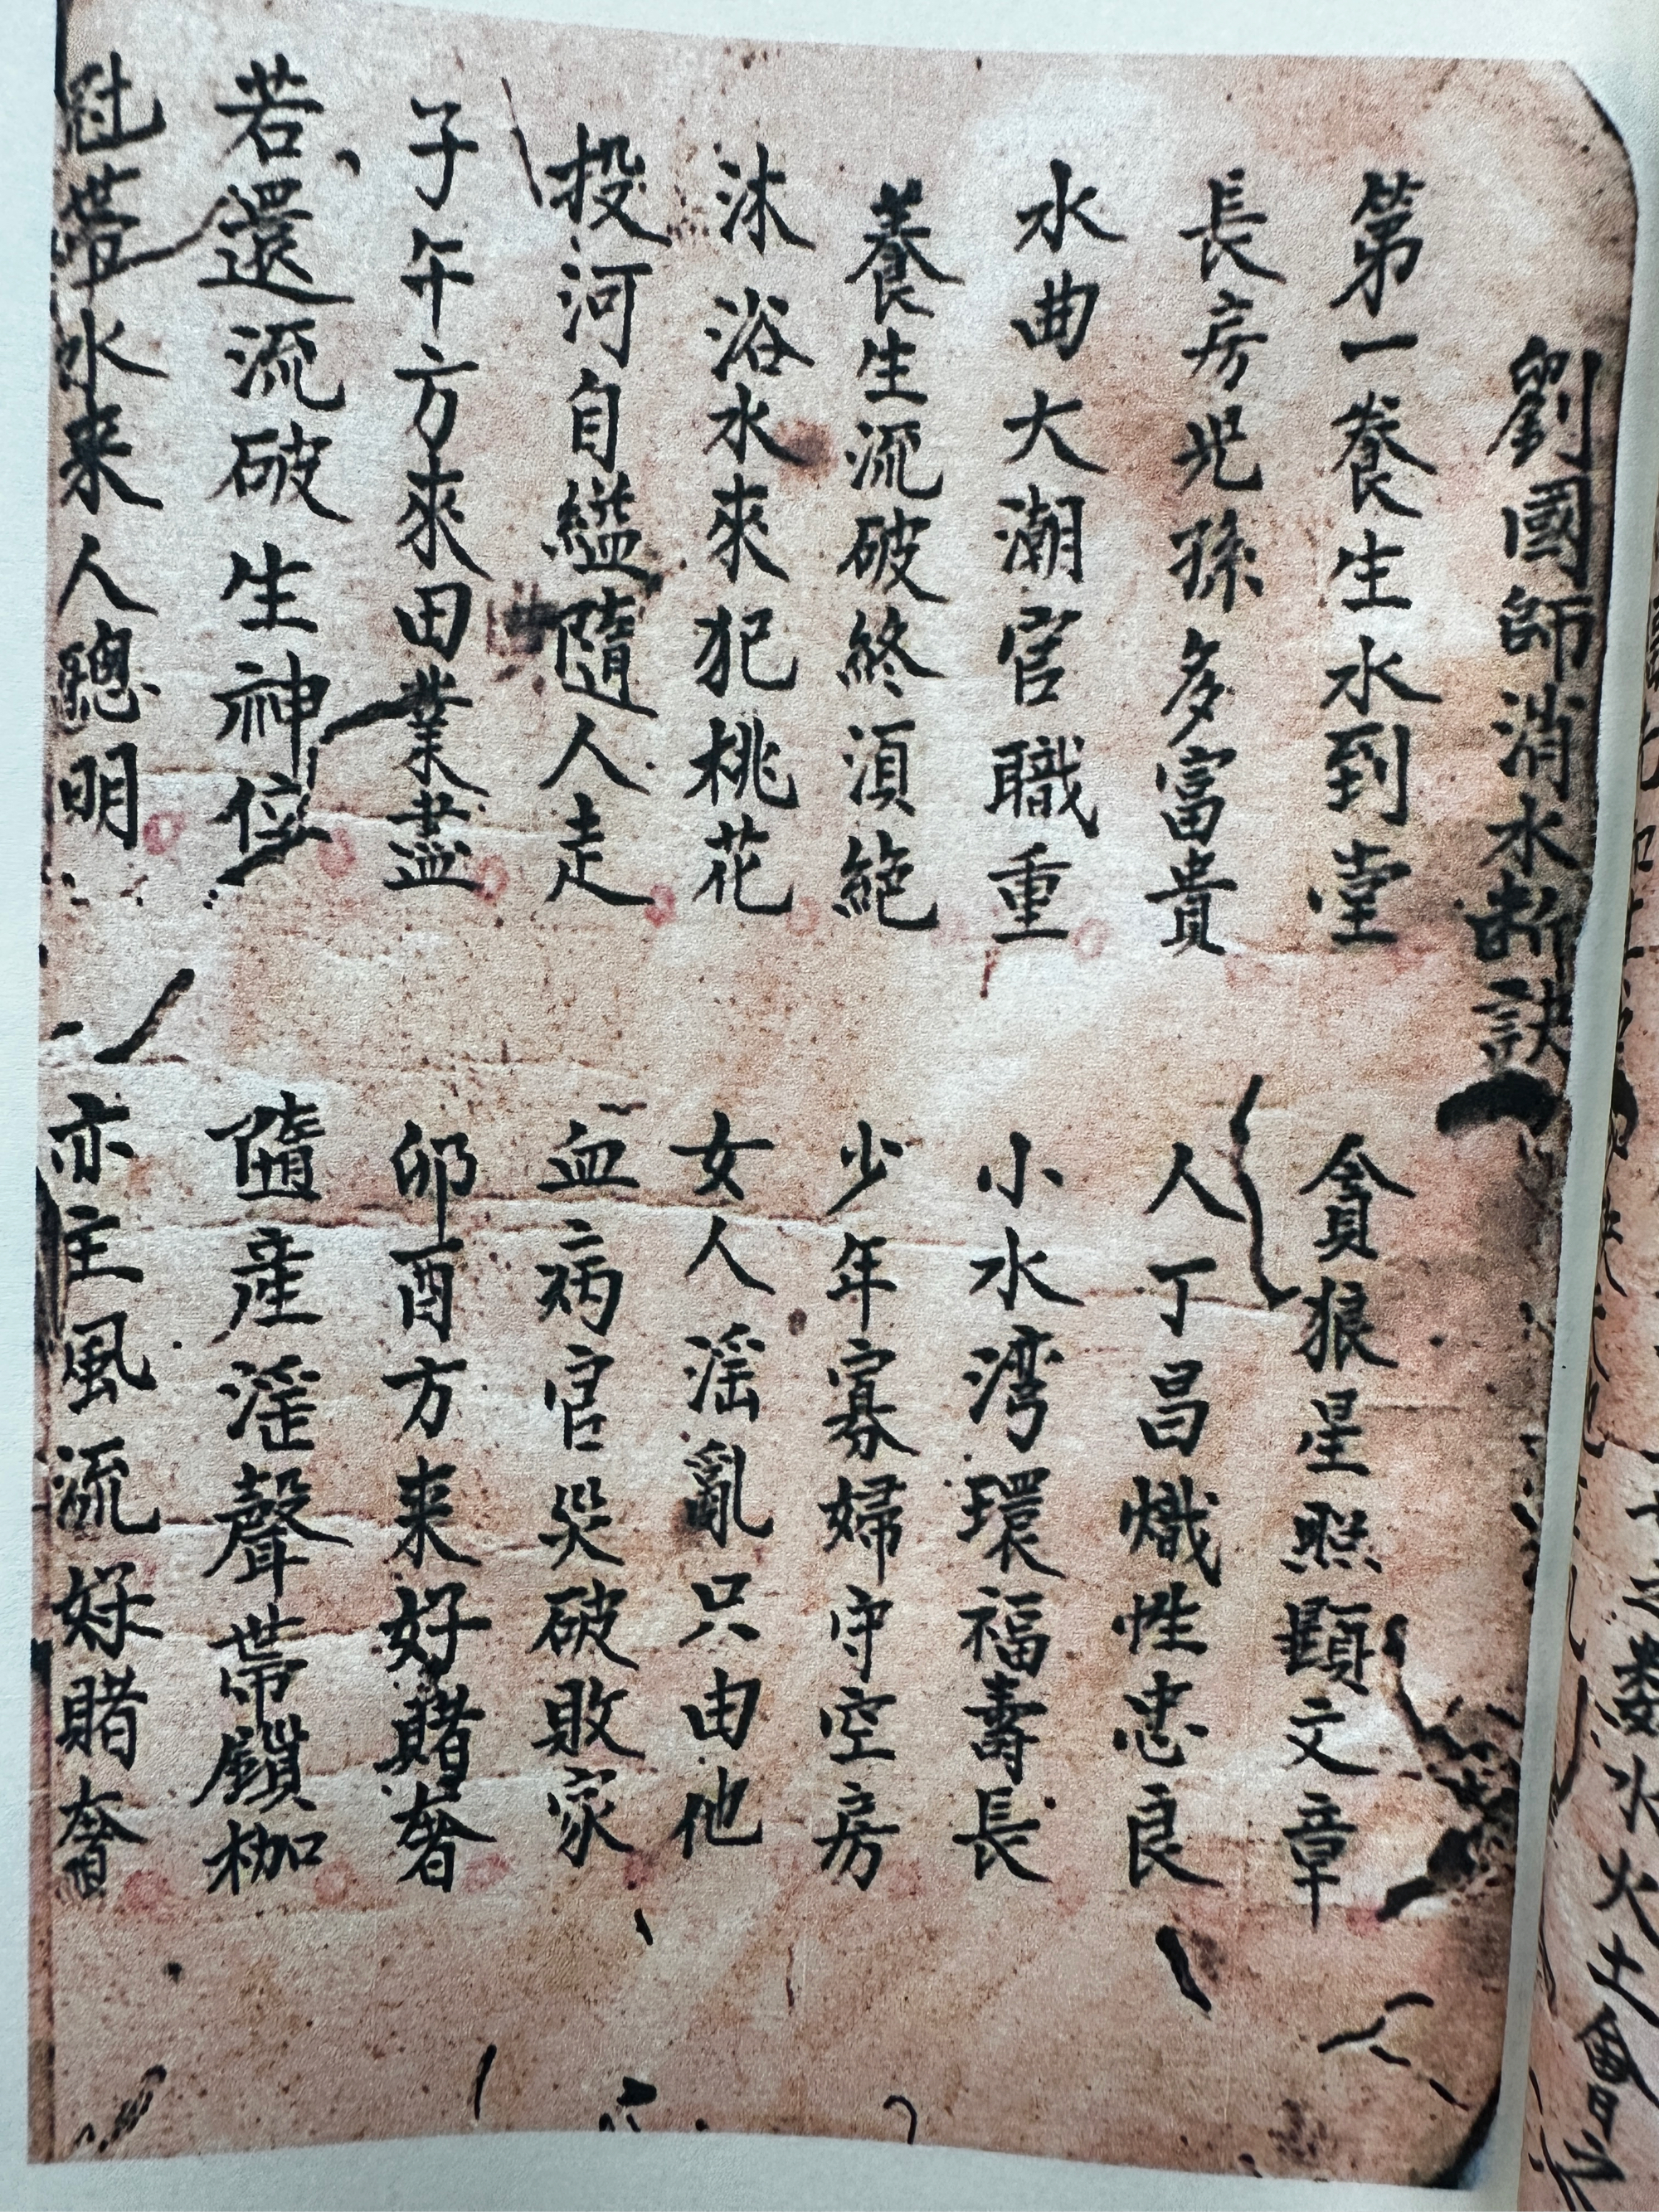 劉國師消水斷訣
第一養生水到堂 貪狼星照顯文章
長房児孫多富貴 人丁昌熾性忠良
水曲大潮官職重 小水湾環福壽長
養生流破終須絕 少年寡婦守空房
沐浴水來犯桃花 女人淫亂只由他
投河自縊隨人走 血病官災破敗家
子午方來田業盡 卯酉方来好賭奢
若還流破生神位 隨産淫聲帯鎖枷
冠帶水来人聰明 亦主風流好賭奢